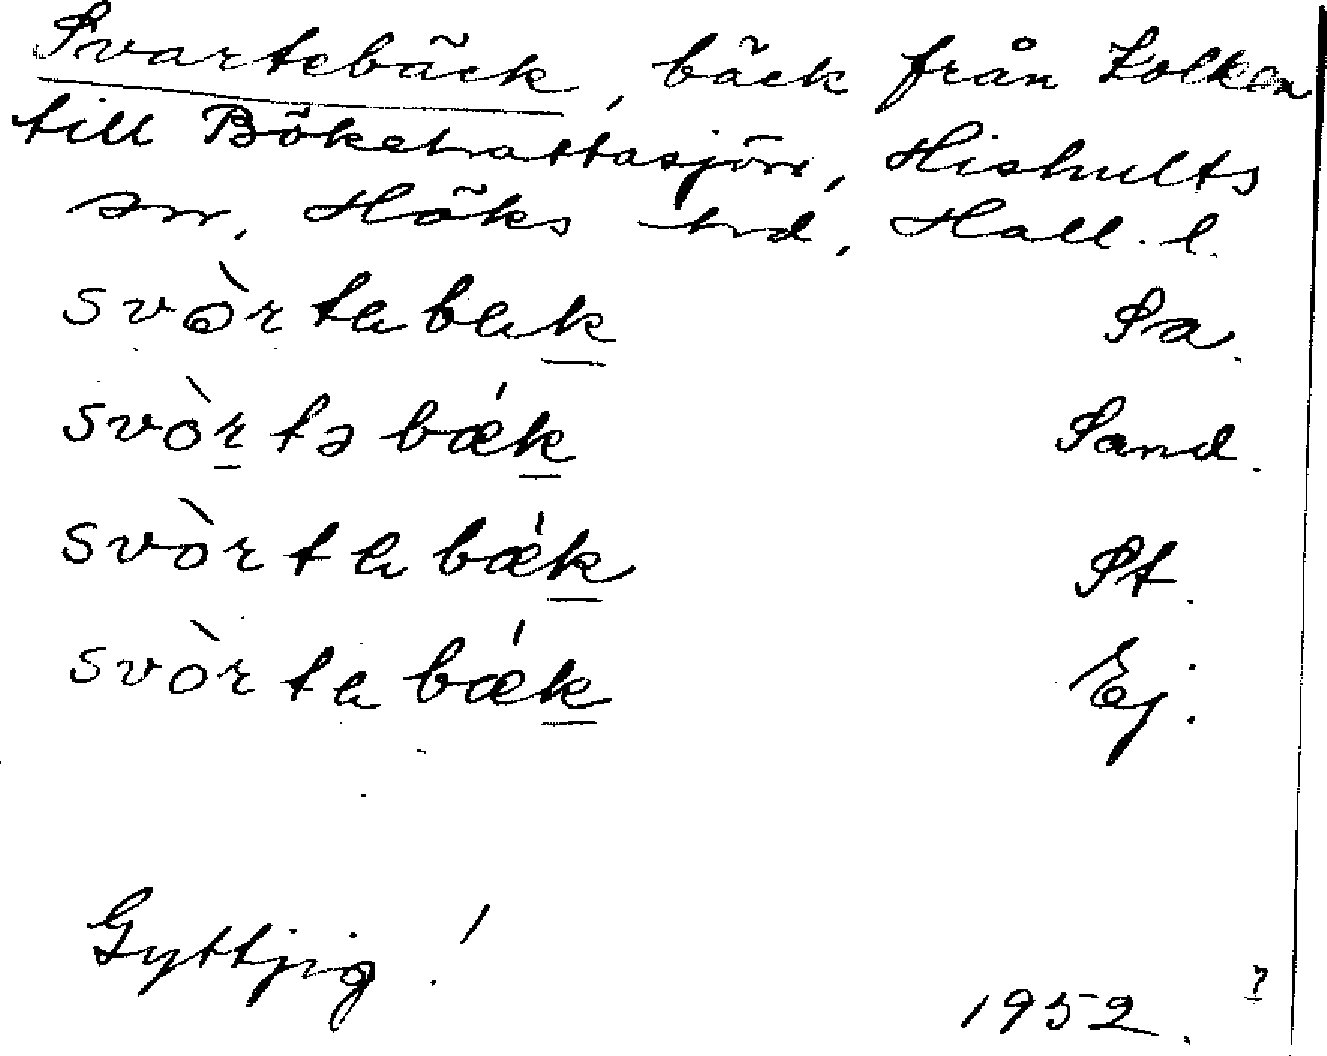 Svartebäck, bäck från Kolken
till Bökebrattasjön, Hishults
sn, Höks hrd, Hall. l.
svòrtabak Sa.
svòrtəbǽk Sand.
svòrtabǽk St.
svòrtabǽk Ej.
Gyttjig!
1952.